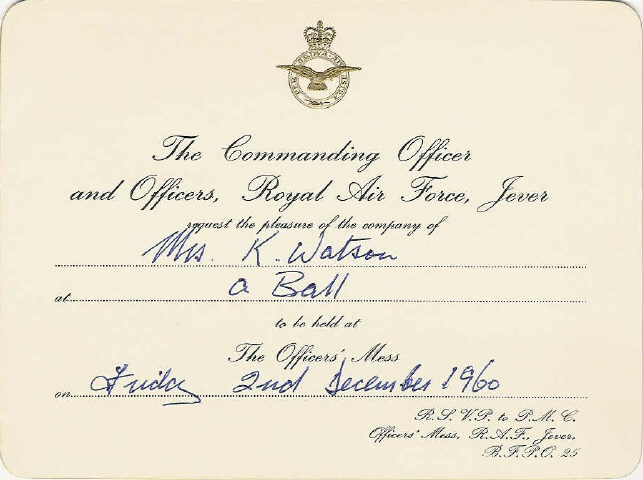 The Commanding Officer
and Officers, Royal Air Force, Jever
request the pleasure of the company of
Mrs. K. Watson
at a Ball
to be held at
The Officers' Mess
on Friday 2nd December 1960
R.S.V.P. to P.M.C.
Officers' Mess, R.A.F., Jever,
B.F.P.O. 25